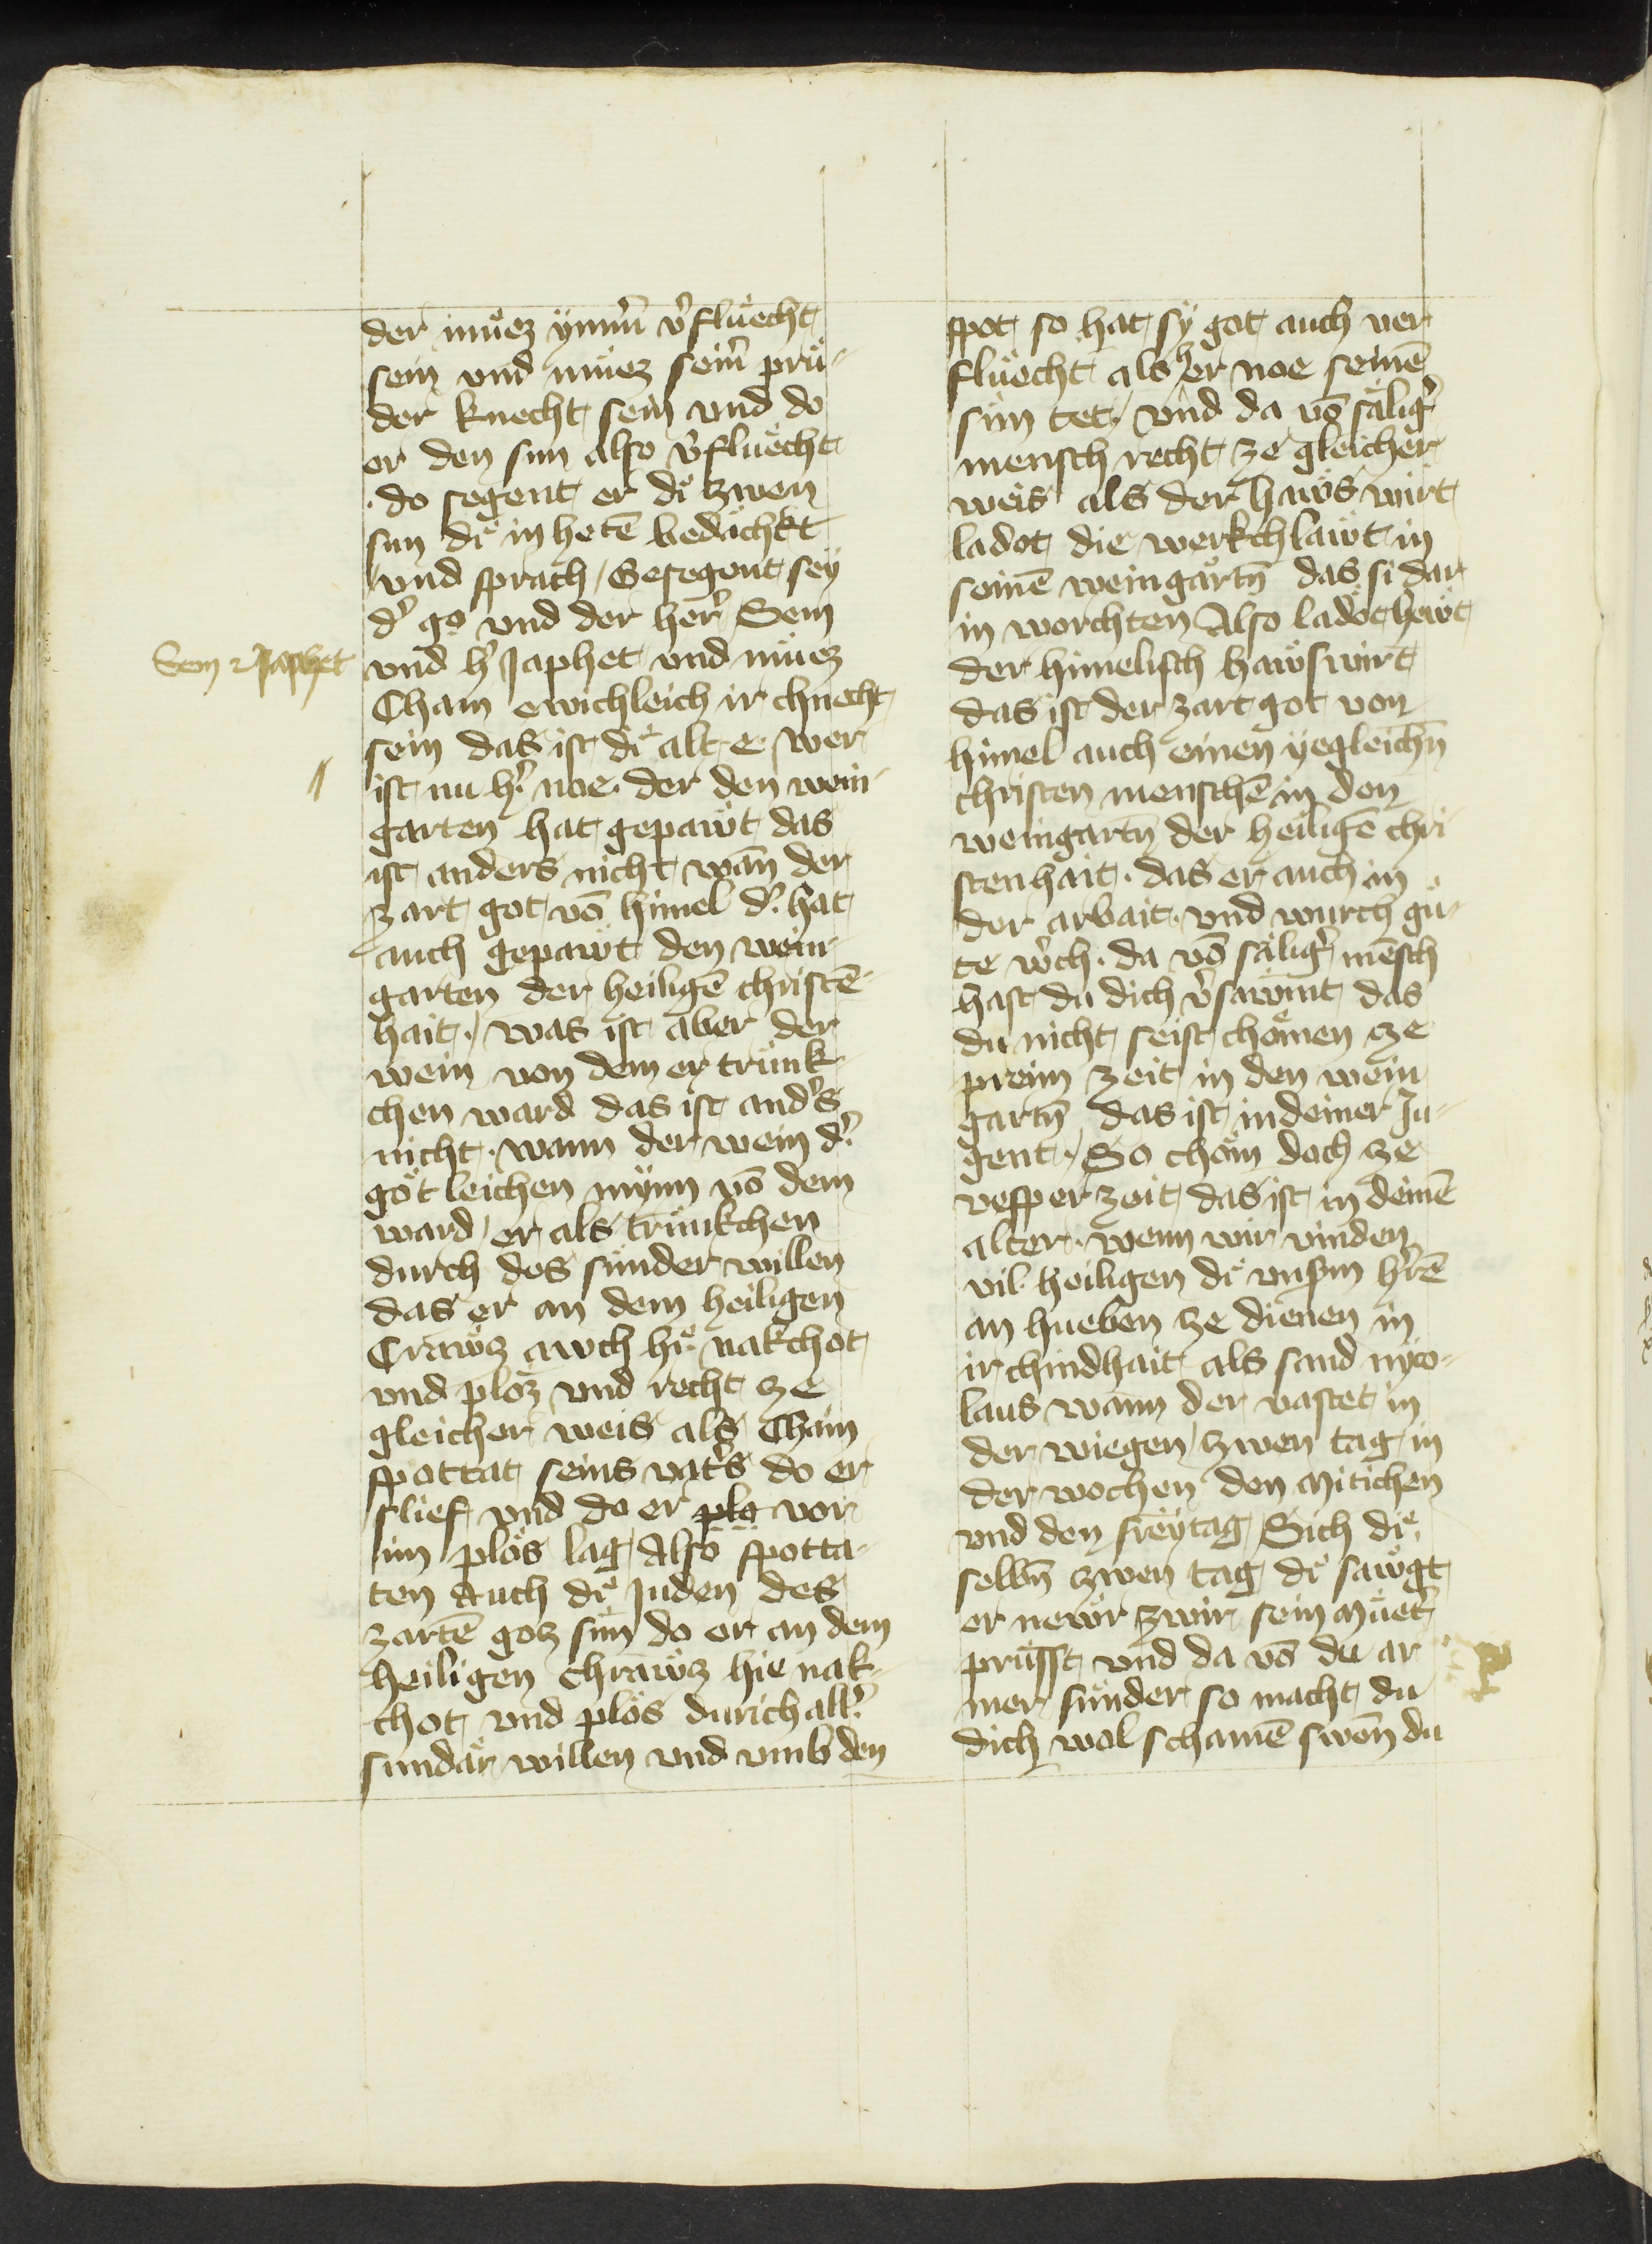 der muͤez ÿmm̄ v̉fluͤecht
sein vnd muͤez seim̄ pruͤ-
der knecht sein vnd do
er den sun also v̉fluͤecht
do segent er diͤ zwen
sun diͤ in hetē bedächkt
vnd sprach / Gesegent sey
d̉ go vnd der her̉ Sem
Sem ⁊ Japhet
vnd h̉ Japhet vnd muͤez
Cham ewichleich ir chnecht
sein das ist diͤ alt e / wer
ist nu h̉ noe · der den wein-
garten hat gepawͤt das
ist anders nicht wān der
zart got vō himel d̉ hat
auch gepawͤt den wein-
garten der heiligē christē-
hait · / was ist aber der
wein von dem er trunk-
chen ward das ist and̉s
nicht · wann der wein d̉
götleichen mÿnn vō dem
ward er als trunkchen
durch des sunder willen
das er an dem heiligen
Crawͤz awch hiͤ nakchot
vnd ploz vnd recht ze
gleicher weis als Cham
spottat seins vat̉s do er
slief vnd do er plo vor
im plos lag Also spotta-
ten Auch diͤ Juden des
zartē goz sun do er an dem
heiligen chrawͤz hie nak-
chot vnd plos durich all̉
sundär willen vnd vmb den
spot so hat sÿ got auch ver
fluͤecht als h er noe seinē
sun tet / vnd da vō sälig̉
mensch recht ze gleicher
weis als der hawͤs wirt
ladot die werkchlawͤt in
seinē weingartn̄ das si dar
in worchten Also ladot hewͤt
der himelisch hawͤswirt
das ist der zart got von
himel auch einen yegleichn̄
christen menschē in den
weingartn̄ der heiligē chri
stenhait · das er auch in
der arbait · vnd wurch guͤ-
te w̉ch · da vō sälig̉ mēsch
hast du dich v̉sawmt das
du nicht seist chömen ze
preim zeit in den wein
gartn̄ das ist in deiner Ju-
gent · / So chöm doch ze
vesper zeit das ist in deinē
alter · wenn wir vinden
vil heiligen diͤ vnsm̄ h̉rē
an hueben ze dienen in
ir chindhait als sand nyco-
laus wann der vastet in
der wiegen / zwen tag in
der wochen den Mitichen
vnd den freÿtag / Sich diͤ
selbn̄ zwen tag diͤ sawͤgt
er newͤr zwir sein Muͤet̉
pruͤsst vnd da vō du ar
mer sunder so macht du
dich wol schamē swen̄ du